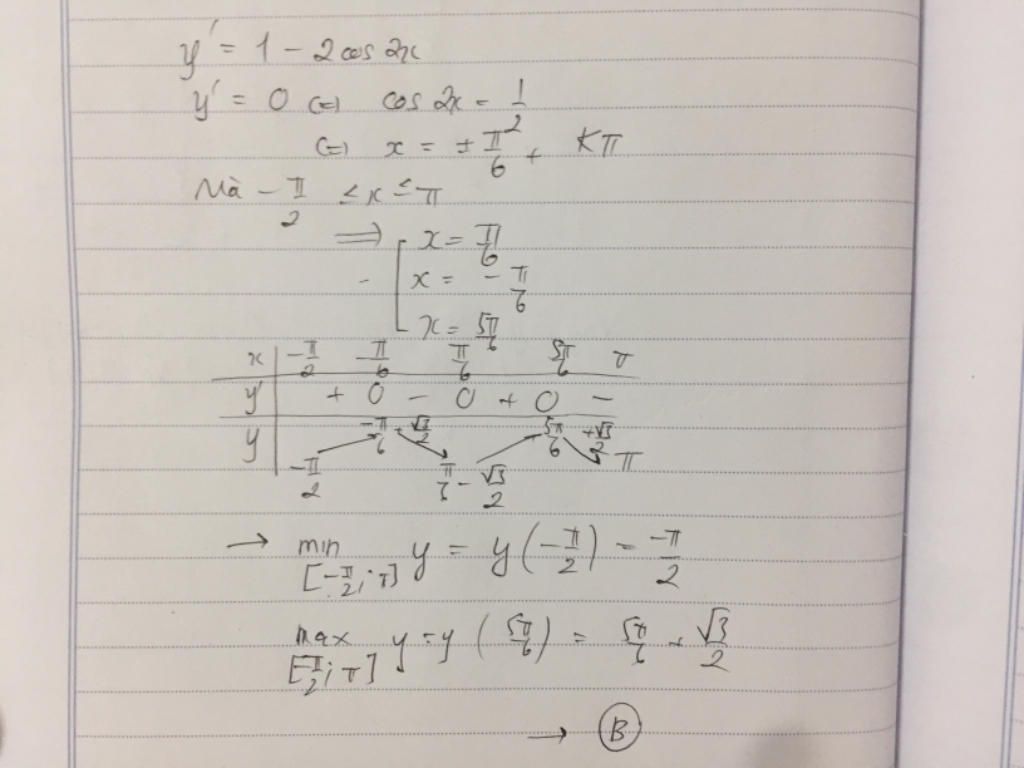 y' = 1 - 2 cos 2x
y' = 0 (=) cos 2x = 1/2
(=) x = ± π/6 + Kπ
Mà -π/2 ≤ x ≤ π
=> [ x = π/6
- [ x = -π/6
[ x = 5π/6
x | -π/2 -π/6 π/6 5π/6 π
y' | + 0 - 0 + 0 -
y | -π/2 ↗ -π/6 + √3/2 ↘ π/6 - √3/2 ↗ 5π/6 + √3/2 ↘ π
→ min [-π/2; π] y = y(-π/2) = -π/2
max [-π/2; π] y = y(5π/6) = 5π/6 + √3/2
→ B